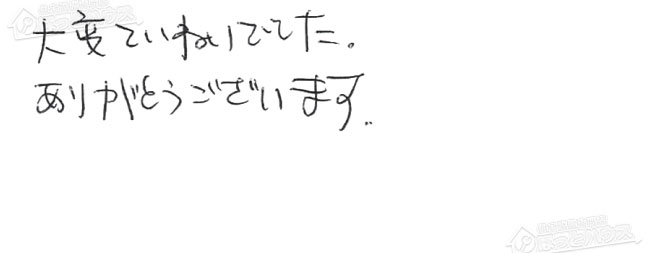 大変ていねいでした。
ありがとうございます。